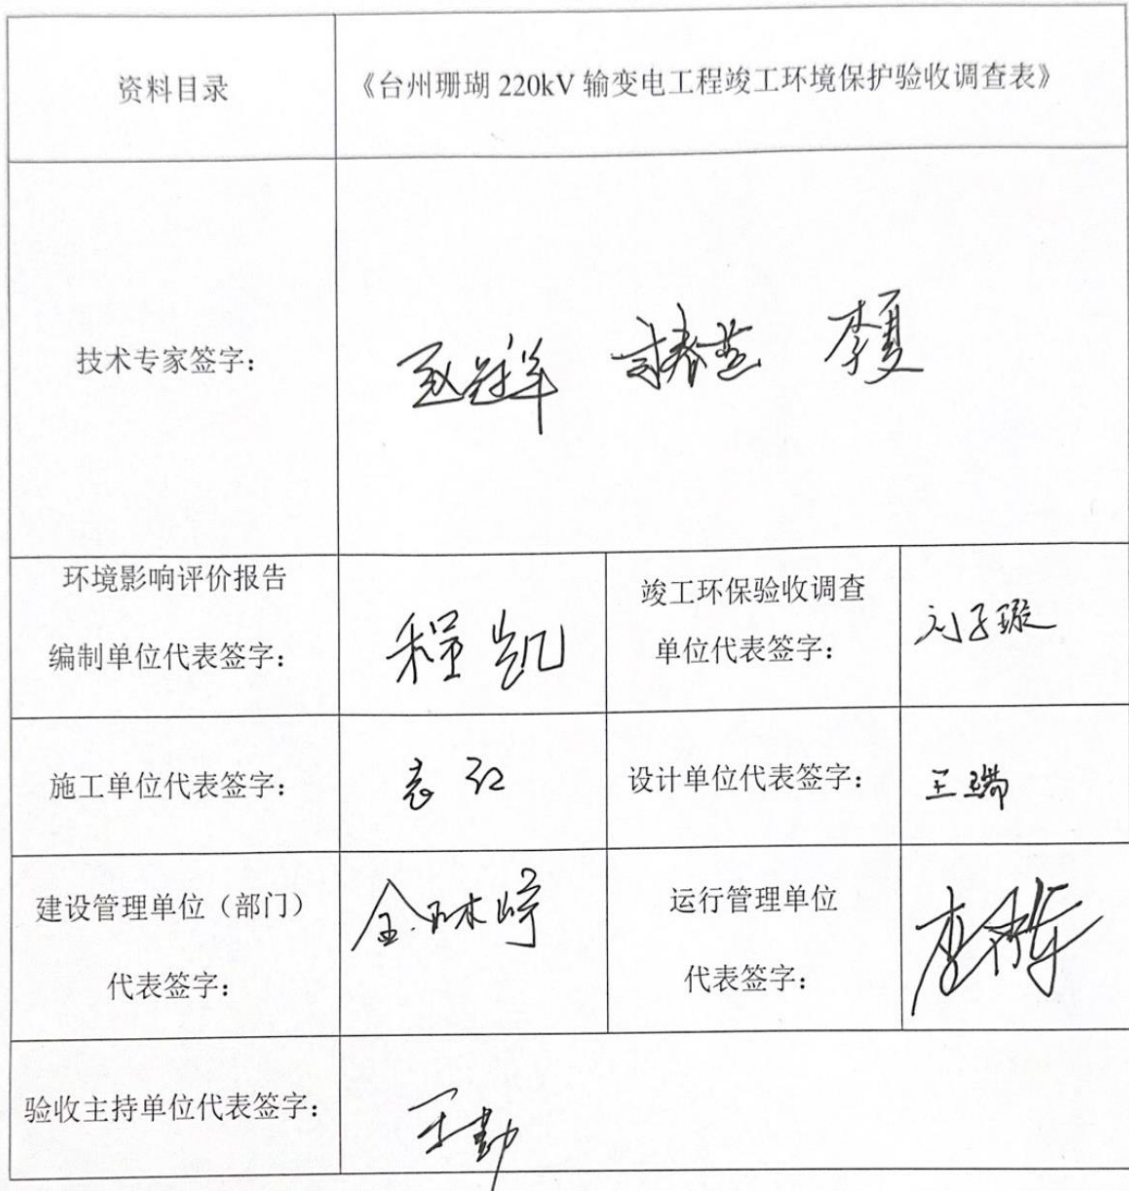 资料目录
《台州珊瑚 220kV 输变电工程竣工环境保护验收调查表》
技术专家签字：
李夏
环境影响评价报告
编制单位代表签字：
程凯
竣工环保验收调查
单位代表签字：
刘子璇
施工单位代表签字：
袁红
设计单位代表签字：
王瑞
建设管理单位（部门）
代表签字：
运行管理单位
代表签字：
验收主持单位代表签字：
王勤